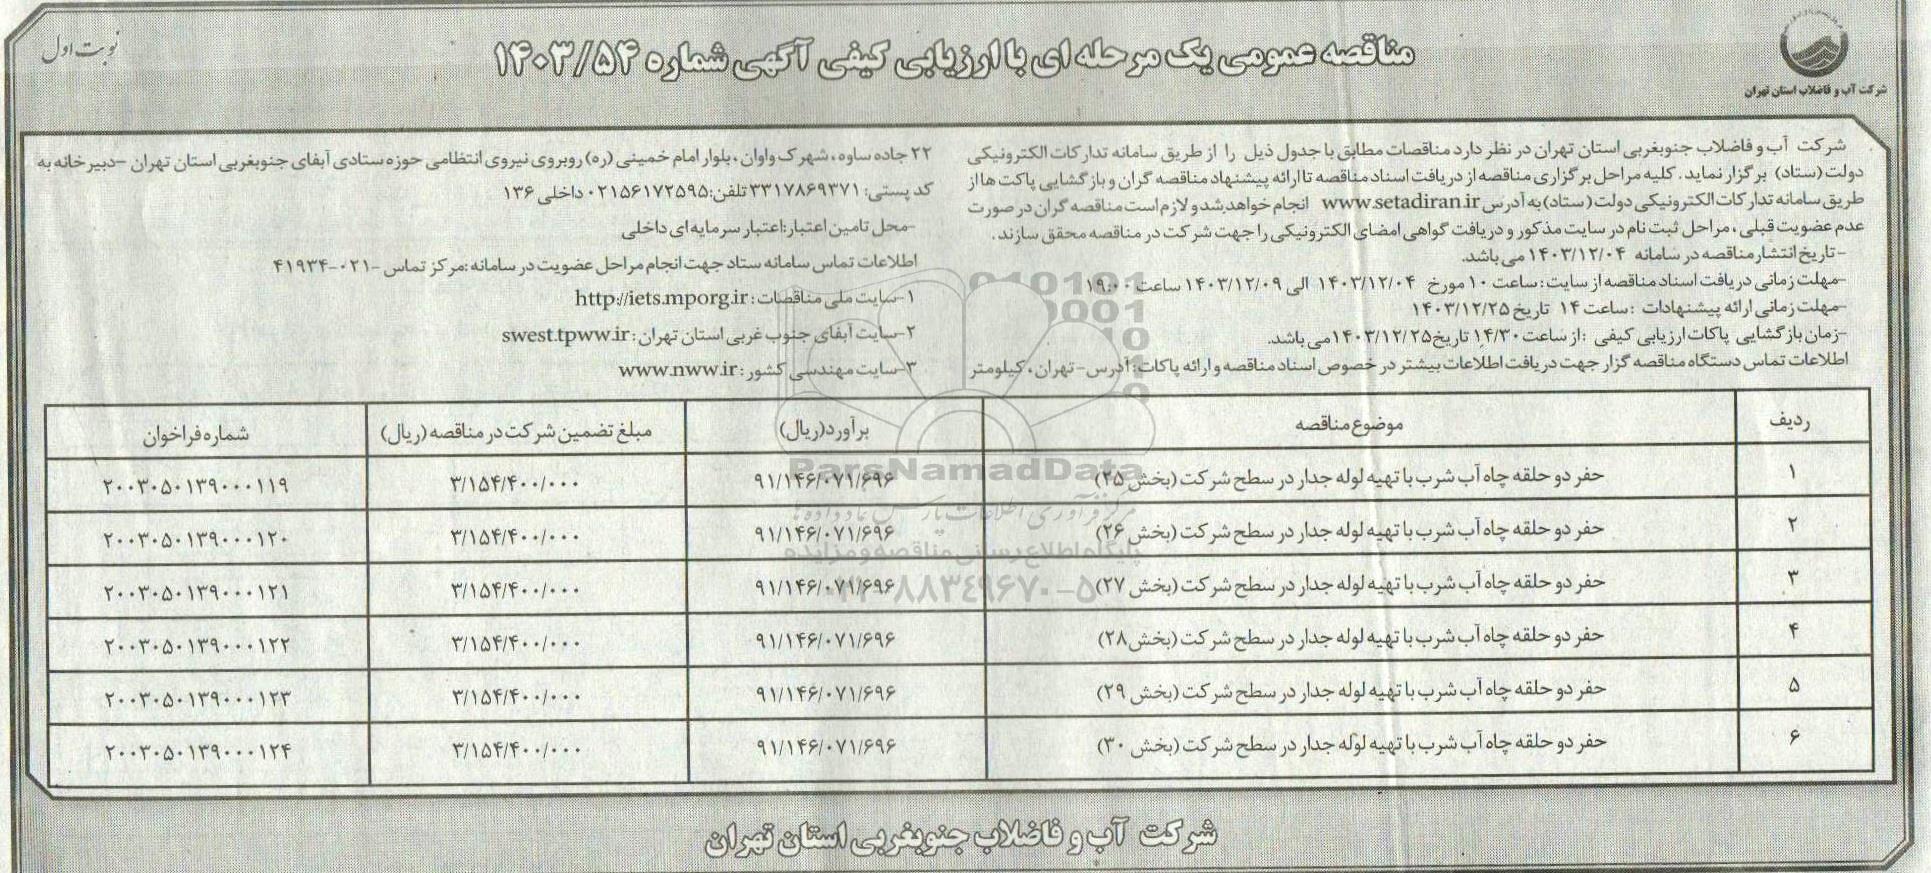 نوبت اول
مناقصه عمومی یک مرحله ای با ارزیابی کیفی آگهی شماره ۱۴۰۳/۵۴
شرکت آب و فاضلاب استان تهران
شرکت آب و فاضلاب جنوبغربی استان تهران در نظر دارد مناقصات مطابق با جدول ذیل را از طریق سامانه تدارکات الکترونیکی
دولت (ستاد) برگزار نماید. کلیه مراحل برگزاری مناقصه از دریافت اسناد مناقصه تا ارائه پیشنهاد مناقصه گران و بازگشایی پاکت ها از
طریق سامانه تدارکات الکترونیکی دولت (ستاد) به آدرس www.setadiran.ir انجام خواهد شد و لازم است مناقصه گران در صورت
عدم عضویت قبلی، مراحل ثبت نام در سایت مذکور و دریافت گواهی امضای الکترونیکی را جهت شرکت در مناقصه محقق سازند.
-تاریخ انتشار مناقصه در سامانه ۱۴۰۳/۱۲/۰۴ می باشد.
-مهلت زمانی دریافت اسناد مناقصه از سایت: ساعت ۱۰ مورخ ۱۴۰۳/۱۲/۰۴ الی ۱۴۰۳/۱۲/۰۹ ساعت ۱۹:۰۰
-مهلت زمانی ارائه پیشنهادات : ساعت ۱۴ تاریخ ۱۴۰۳/۱۲/۲۵
-زمان بازگشایی پاکات ارزیابی کیفی : از ساعت ۱۴/۳۰ تاریخ ۱۴۰۳/۱۲/۲۵ می باشد.
اطلاعات تماس دستگاه مناقصه گزار جهت دریافت اطلاعات بیشتر در خصوص اسناد مناقصه و ارائه پاکات: آدرس- تهران، کیلومتر
۲۲ جاده ساوه، شهرک واوان، بلوار امام خمینی (ره) روبروی نیروی انتظامی حوزه ستادی آبفای جنوبغربی استان تهران -دبیرخانه به
کد پستی: ۳۳۱۷۸۶۹۳۷۱ تلفن: ۰۲۱۵۶۱۷۲۵۹۵ داخلی ۱۳۶
-محل تامین اعتبار: اعتبار سرمایه ای داخلی
اطلاعات تماس سامانه ستاد جهت انجام مراحل عضویت در سامانه: مرکز تماس -۰۲۱-۴۱۹۳۴
۱-سایت ملی مناقصات: http://iets.mporg.ir
۲-سایت آبفای جنوب غربی استان تهران: swest.tpww.ir
۳-سایت مهندسی کشور: www.nww.ir
ردیف موضوع مناقصه برآورد(ریال) مبلغ تضمین شرکت در مناقصه (ریال) شماره فراخوان
۱ حفر دو حلقه چاه آب شرب با تهیه لوله جدار در سطح شرکت (بخش ۲۵) ۹۱/۱۴۶/۰۷۱/۶۹۶ ۳/۱۵۴/۴۰۰/۰۰۰ ۲۰۰۳۰۵۰۱۳۹۰۰۰۱۱۹
۲ حفر دو حلقه چاه آب شرب با تهیه لوله جدار در سطح شرکت (بخش ۲۶) ۹۱/۱۴۶/۰۷۱/۶۹۶ ۳/۱۵۴/۴۰۰/۰۰۰ ۲۰۰۳۰۵۰۱۳۹۰۰۰۱۲۰
۳ حفر دو حلقه چاه آب شرب با تهیه لوله جدار در سطح شرکت (بخش ۲۷) ۹۱/۱۴۶/۰۷۱/۶۹۶ ۳/۱۵۴/۴۰۰/۰۰۰ ۲۰۰۳۰۵۰۱۳۹۰۰۰۱۲۱
۴ حفر دو حلقه چاه آب شرب با تهیه لوله جدار در سطح شرکت (بخش ۲۸) ۹۱/۱۴۶/۰۷۱/۶۹۶ ۳/۱۵۴/۴۰۰/۰۰۰ ۲۰۰۳۰۵۰۱۳۹۰۰۰۱۲۲
۵ حفر دو حلقه چاه آب شرب با تهیه لوله جدار در سطح شرکت (بخش ۲۹) ۹۱/۱۴۶/۰۷۱/۶۹۶ ۳/۱۵۴/۴۰۰/۰۰۰ ۲۰۰۳۰۵۰۱۳۹۰۰۰۱۲۳
۶ حفر دو حلقه چاه آب شرب با تهیه لوله جدار در سطح شرکت (بخش ۳۰) ۹۱/۱۴۶/۰۷۱/۶۹۶ ۳/۱۵۴/۴۰۰/۰۰۰ ۲۰۰۳۰۵۰۱۳۹۰۰۰۱۲۴
ParsNamadData
مرکز فرآوری اطلاعات پارس نماد داده ها
پایگاه اطلاع رسانی مناقصه و مزایده
۰۲۱-۸۸۳۴۹۶۷۰-۵
شرکت آب و فاضلاب جنوبغربی استان تهران